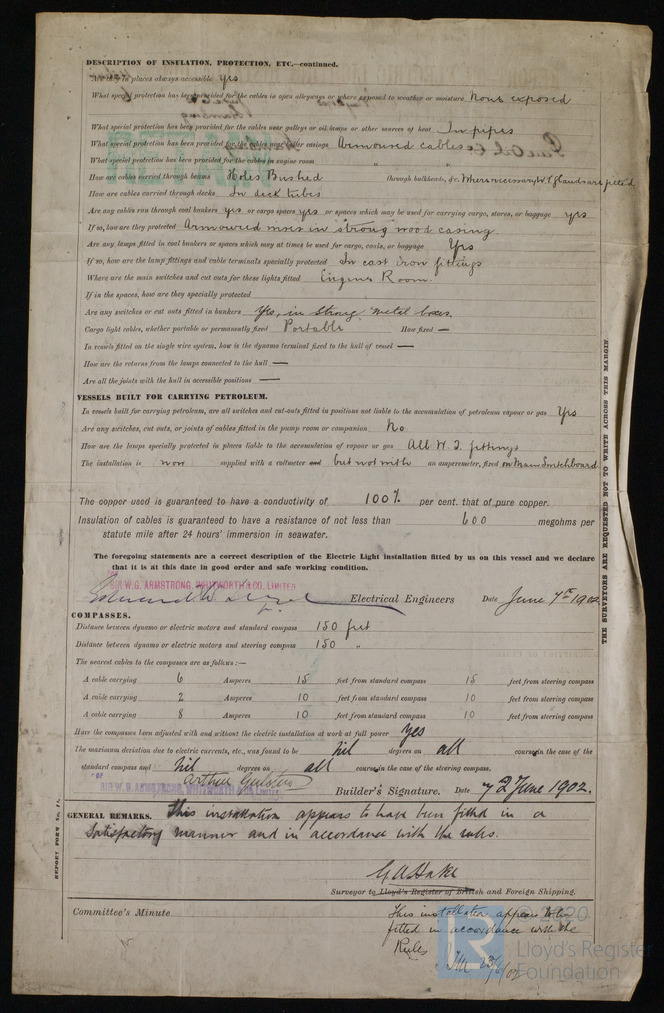 DESCRIPTION OF INSULATION, PROTECTION, ETC.—continued.
places always accessible yes
What special protection has been provided for the cables in open alleyways or where exposed to weather or moisture None exposed
What special protection has been provided for the cables near galleys or oil lamps or other sources of heat In pipes
What special protection has been provided for the cables near boiler casings Armoured cables
What special protection has been provided for the cables in engine room " "
How are cables carried through beams Holes Bushed through bulkheads, &c. Where necessary W.T. glands are fitted
How are cables carried through decks In deck tubes
Are any cables run through coal bunkers yes or cargo spaces yes or spaces which may be used for carrying cargo, stores, or baggage yes
If so, how are they protected Armoured wires in strong wood casing
Are any lamps fitted in coal bunkers or spaces which may at times be used for cargo, coals, or baggage Yes
If so, how are the lamp fittings and cable terminals specially protected In cast iron fittings
Where are the main switches and cut outs for these lights fitted Engine Room.
If in the spaces, how are they specially protected
Are any switches or cut outs fitted in bunkers Yes, in strong metal boxes
Cargo light cables, whether portable or permanently fixed Portable How fixed —
In vessels fitted on the single wire system, how is the dynamo terminal fixed to the hull of vessel —
How are the returns from the lamps connected to the hull —
Are all the joints with the hull in accessible positions —
VESSELS BUILT FOR CARRYING PETROLEUM.
In vessels built for carrying petroleum, are all switches and cut-outs fitted in positions not liable to the accumulation of petroleum vapour or gas Yes
Are any switches, cut outs, or joints of cables fitted in the pump room or companion No
How are the lamps specially protected in places liable to the accumulation of vapour or gas All W.T. fittings
The installation is now supplied with a voltmeter and but not with an amperemeter, fixed on Main Switchboard
The copper used is guaranteed to have a conductivity of 100% per cent. that of pure copper.
Insulation of cables is guaranteed to have a resistance of not less than 600 megohms per
statute mile after 24 hours' immersion in seawater.
The foregoing statements are a correct description of the Electric Light installation fitted by us on this vessel and we declare
that it is at this date in good order and safe working condition.
SIR W.G. ARMSTRONG, WHITWORTH & CO. LIMITED
Electrical Engineers Date June 7th 1902
COMPASSES.
Distance between dynamo or electric motors and standard compass 150 feet
Distance between dynamo or electric motors and steering compass 150 "
The nearest cables to the compasses are as follows:—
A cable carrying 6 Amperes 15 feet from standard compass 15 feet from steering compass
A cable carrying 2 Amperes 10 feet from standard compass 10 feet from steering compass
A cable carrying 8 Amperes 10 feet from standard compass 10 feet from steering compass
Have the compasses been adjusted with and without the electric installation at work at full power Yes
The maximum deviation due to electric currents, etc., was found to be Nil degrees on all courses in the case of the
standard compass and Nil degrees on all courses in the case of the steering compass.
OF
SIR W. G. ARMSTRONG, WHITWORTH & CO. LIMITED
Builder's Signature. Date June 1902.
GENERAL REMARKS. This installation appears to have been fitted in a
Satisfactory manner and in accordance with the rules.
Surveyor to Lloyd's Register of British and Foreign Shipping.
Committee's Minute
This installation appears to be
fitted in accordance with the
Rules
THE SURVEYORS ARE REQUESTED NOT TO WRITE ACROSS THIS MARGIN.
REPORT FORM No. 17.
© 2020
Lloyd's Register
Foundation
LR